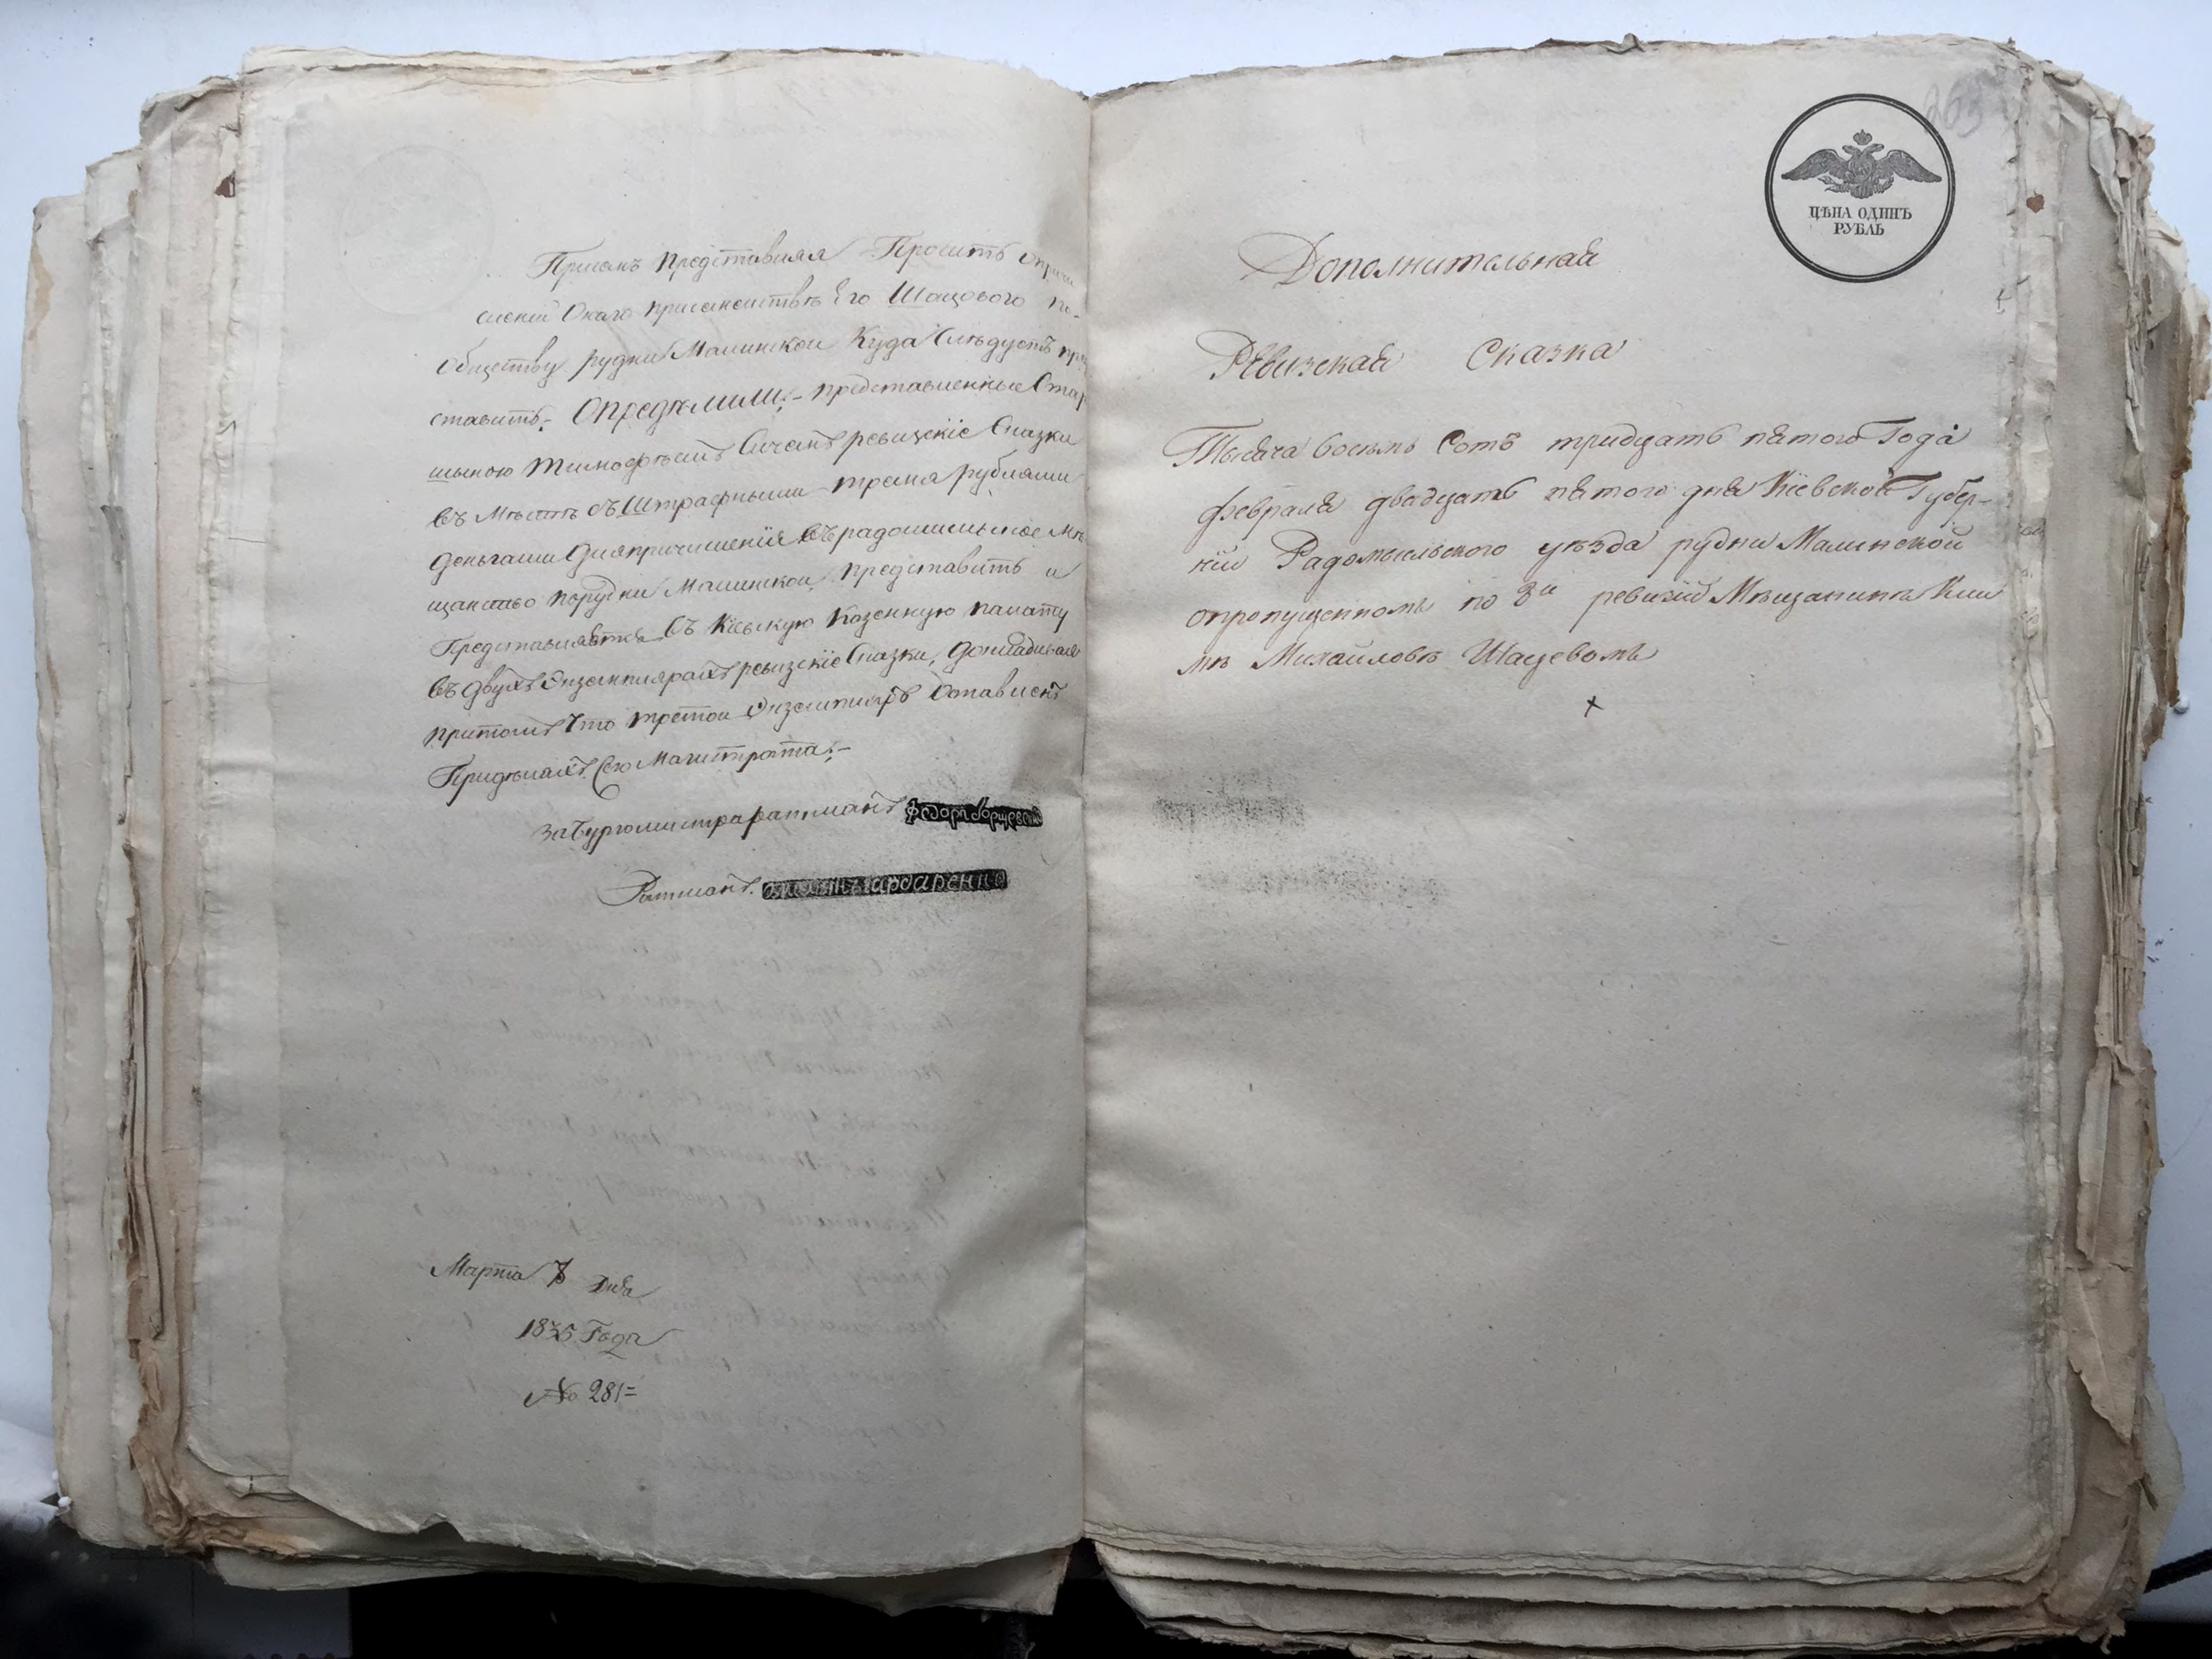 Присемъ представляя Проситъ опричи
слении Окаго присемействѣ Его Шацового по-
обществу рудни Малинской Куда Слѣдуетъ пре
ставить. Опредѣлили:- представленные Стар
шиною Тимофѣемъ Сичемъ ревизскіе Сказки
въ Мѣстѣ съ Штрафными тремя рублями
деньгами для причисленія въ радомышльское мѣ
щанство порудни Малинской представить и
Представляются въ Кіевскую Казенную палату
въ двухъ Экземплярахъ ревизскіе Сказки, докладывая
притомъ Что третой Экземпляръ Оставленъ
Придѣлахъ Сего Магистрата.-
За Бургомистра ратманъ Федоръ Борщевскій
Ратманъ
Марта 7 дня
1835 Года
№ 281=
263
ЦѢНА ОДИНЪ
РУБЛЬ
Дополнительная
Ревизская Сказка
Тысяча восемь Сотъ тридцать пятого Года
февраля двадцать пятого дня Кіевской Губер-
ніи Радомысльского уѣзда рудни Малинской
опропущенномъ по 8й ревизіи Мѣщанинѣ Кли
мѣ Михайловѣ Шацевомъ